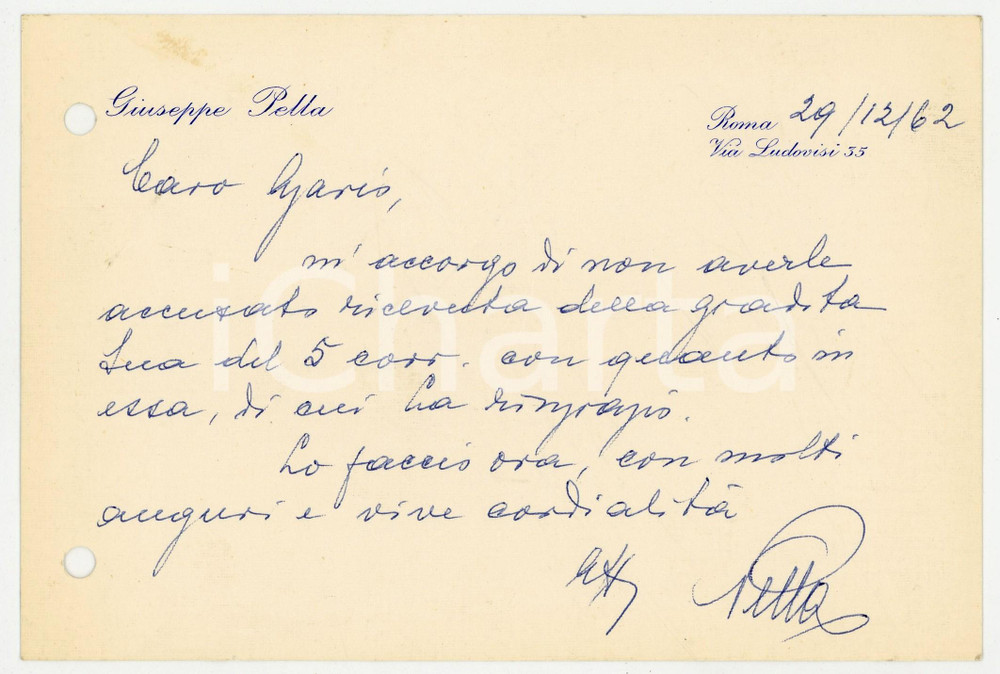 Giuseppe Pella
Roma 29/12/62
Via Ludovisi 35
Caro
m'accorgo di non averle
accusato ricevuta della gradita
Sua del 5 corr. con quanto in
essa, di cui La ringrazio.
Lo faccio ora, con molti
auguri e vive cordialità
Pella
iCharta